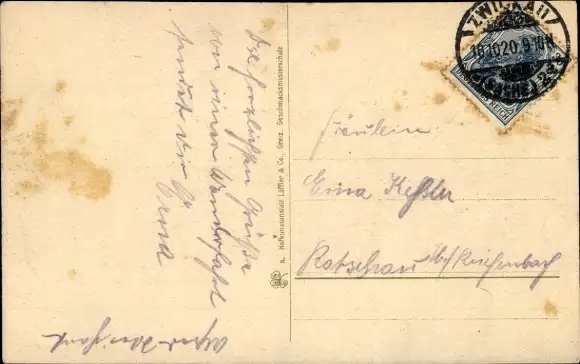 Die herzlichsten Grüße
von einer Wanderfahrt
sendet Dir Dr.
Alfred
ZWICKAU
19.10.20. 9-10V
(SACHSEN) 2
REICH
h. Hofkunstanstalt Löffler & Co., Greiz. Geschmacksmusterschutz
Fräulein
Erna Keßler
Rotschau b/ Reichenbach